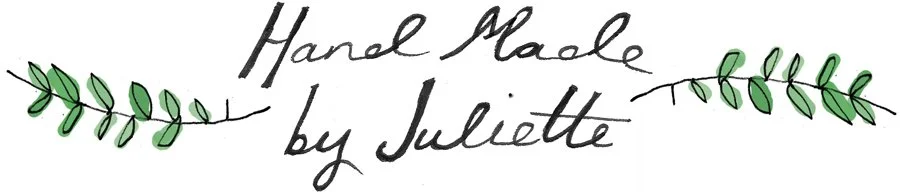 Hand Made
by Juliette